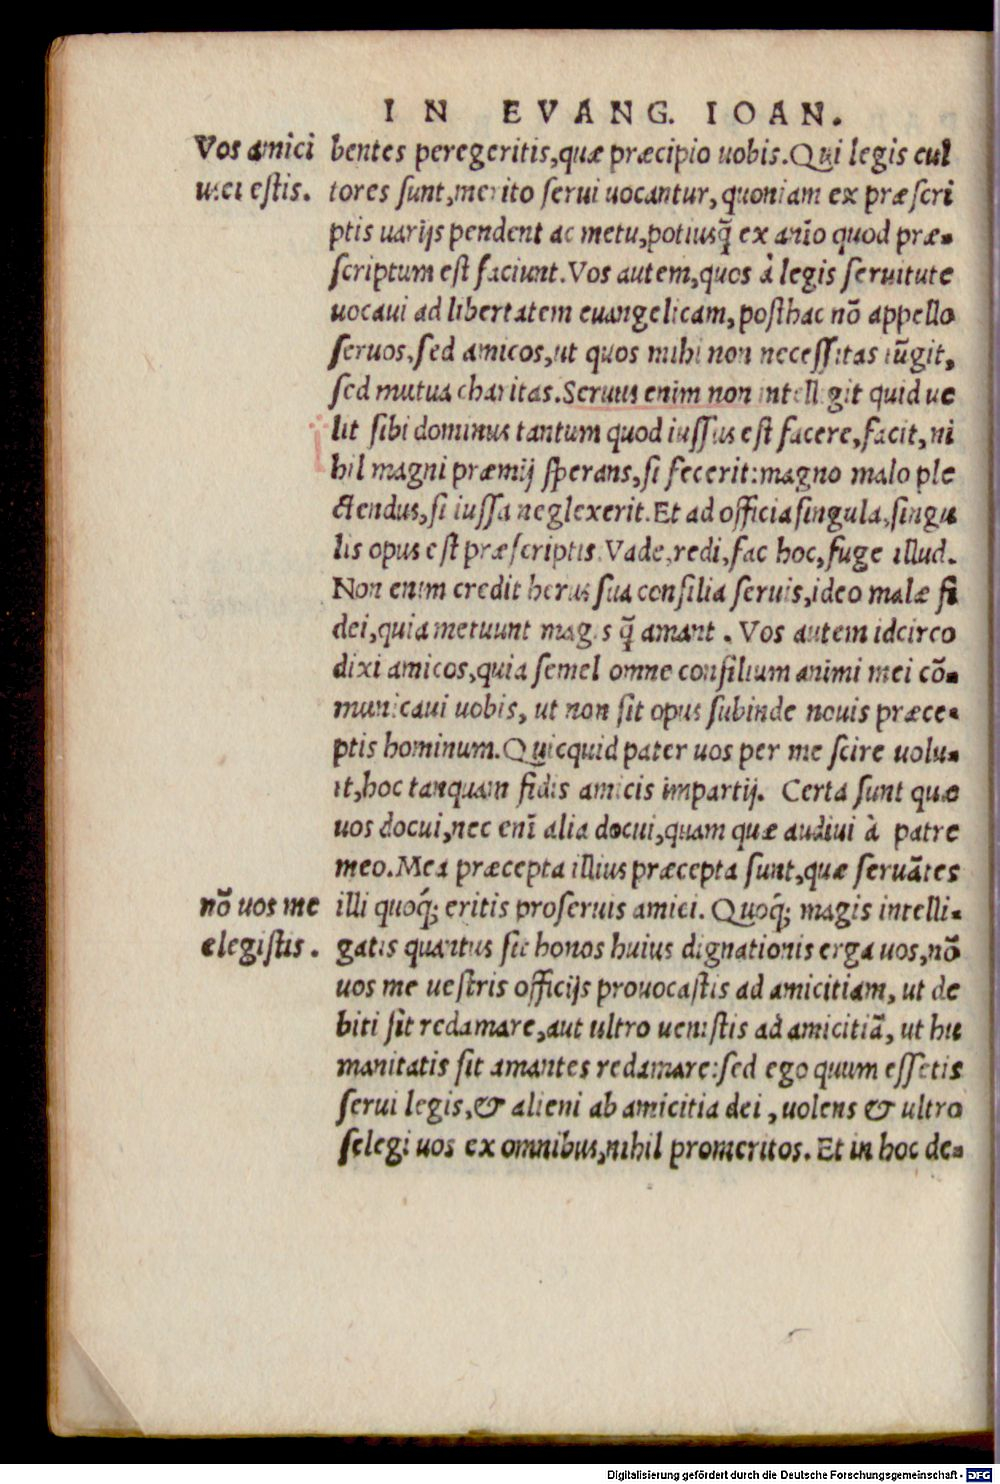 IN EVANG. IOAN.
Vos amici
mei estis.
bentes peregeritis, quæ præcipio uobis. Qui legis cul
tores sunt, merito serui uocantur, quoniam ex præscri
ptis uarijs pendent ac metu, potiusq̃ ex aĩo quod præ-
scriptum est faciunt. Vos autem, quos à legis seruitute
uocaui ad libertatem euangelicam, posthac nõ appello
seruos, sed amicos, ut quos mihi non necessitas iũgit,
sed mutua charitas. Seruus enim non intelligit quid ue
lit sibi dominus tantum quod iussus est facere, facit, ni
hil magni præmij sperans, si fecerit: magno malo ple
ctendus, si iussa neglexerit. Et ad officia singula, singu
lis opus est præscriptis. Vade, redi, fac hoc, fuge illud.
Non enim credit herus sua consilia seruis, ideo malæ fi
dei, quia metuunt magis q̃ amant. Vos autem idcirco
dixi amicos, quia semel omne consilium animi mei cõ-
municaui uobis, ut non sit opus subinde nouis præce-
ptis hominum. Quicquid pater uos per me scire uolu-
it, hoc tanquam fidis amicis impartij. Certa sunt quæ
uos docui, nec enĩ alia docui, quam quæ audiui à patre
meo. Mea præcepta illius præcepta sunt, quæ seruãtes
nõ uos me
elegistis.
illi quoq; eritis pro seruis amici. Quoq; magis intelli-
gatis quantus sit honos huius dignationis erga uos, nõ
uos me uestris officijs prouocastis ad amicitiam, ut de
biti sit redamare, aut ultro uenistis ad amicitiã, ut hu
manitatis sit amantes redamare: sed ego quum essetis
serui legis, & alieni ab amicitia dei, uolens & ultro
selegi uos ex omnibus, nihil promeritos. Et in hoc de-
Digitalisierung gefördert durch die Deutsche Forschungsgemeinschaft - DFG